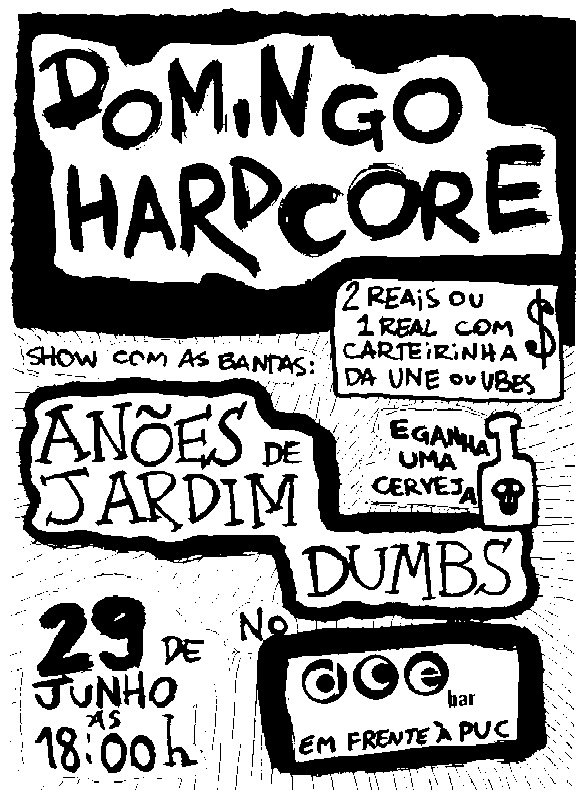 DOMiNGO
HARDCORE
2 REAiS OU
1 REAL COM
CARTEiRiNHA
DA UNE OU UBES
$
SHOW COM AS BANDAS:
ANÕES DE
JARDIM
E GANHA
UMA
CERVEJA
DUMBS
29 DE
JUNHO
ÀS
18:00h
NO
dce
bar
EM FRENTE À PUC